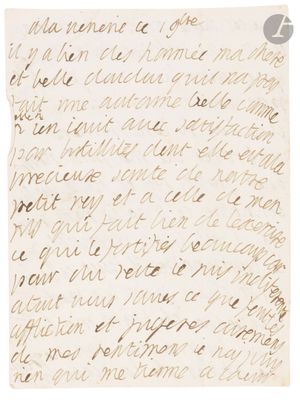 A
ala menerie ce 1 9bre
il y a bien des
ma chere
et belle
quil na pas
fait une automne belle comme
rien iouit avec satisfaction
par
dont elle est a la
precieuse sante de notre
petit roy et a celle de mon
fils qui fait bien de lexercice
ce qui le fortifie beaucoup car
pour du reste ie suis indiferente
a tout vous saves ce que
affliction et jugeres aisement
de mes sentimens ie nay plus
rien qui me tienne a